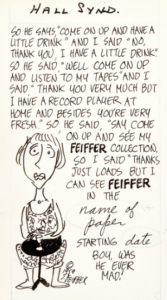 HALL SYND.
SO HE SAYS, "COME ON UP AND HAVE A
LITTLE DRINK" AND I SAID "NO,
THANK YOU, I HAVE A LITTLE DRINK"
SO HE SAID, "WELL COME ON UP
AND LISTEN TO MY TAPES" AND I
SAID "THANK YOU VERY MUCH BUT
I HAVE A RECORD PLAYER AT
HOME AND BESIDES YOU'RE VERY
FRESH." SO HE SAID, "SAY COME
ON UP AND SEE MY
FEIFFER COLLECTION.
SO I SAID "THANKS
JUST LOADS BUT I
CAN SEE FEIFFER
IN THE
name of
paper
STARTING date
BOY, WAS
HE EVER
MAD!
FEIFFER